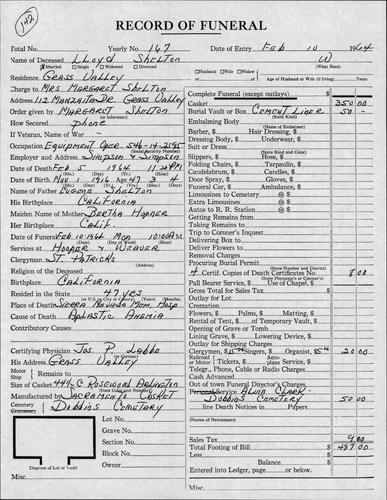 142
RECORD OF FUNERAL
Total No. Yearly No. 167 Date of Entry Feb 10 1964
Name of Deceased Lloyd Shelton W
Married Single Widowed Divorced (What Race)
Residence Grass Valley Husband Wife Widow of Age of Husband or Wife (if living) Years
Charge to Mrs Margaret Shelton
Address 112 Manzanita Dr. Grass Valley
Order given by Margaret Shelton
(or informant)
How Secured phone
If Veteran, Name of War
Occupation Equipment Oper. 546-14-2195
(Social Security Number)
Employer and Address Simpson & Simpson
Date of Death Feb 5 1964 11:20 PM
(Mo.) (Day) (Year) (Hour)
Date of Birth Nov 1 1916 Age 47 3 4
(Mo.) (Day) (Year) (Yrs.) (Mos.) (Days)
Name of Father Eugene Shelton
His Birthplace California
Maiden Name of Mother Bertha Hooper
Her Birthplace Calif
Date of Funeral Feb 10-1964 Mon 10:00 AM
(Date) (Day of Week) (Hour)
Services at Hooper & Weaver
Clergyman St. Patricks
Religion of the Deceased
Birthplace California
Resided in the State 47 yrs
Place of Death Sierra Nevada Mem. Hosp
Cause of Death Aplastic Anemia
Contributory Causes
Certifying Physician Jos. P Ladde
His Address Grass Valley
Motor
Ship Remains to
Size of Casket 444-C Rosewood Arlington
Manufactured by Sacramento Casket
Cemetery
Crematory Dobbins Cemetery
Lot No.
Grave No.
Section No.
Block No.
Owner
Diagram of Lot or Vault
Misc.
Complete Funeral (except outlays) $
Casket 350 00
Burial Vault or Box Cement Liner 50 -
(State Kind)
Embalming Body
(Name of Embalmer)
Barber, $ Hair Dressing, $
Dressing Body, $ Underwear, $
Suit or Dress
(State Kind and Color)
Slippers, $ Hose, $
Folding Chairs, $ Tarpaulin, $
Candelabrum, $ Candles, $
Door Spray, $ Gloves, $
Funeral Car, $ Ambulance, $
Limousines to Cemetery @ $
Extra Limousines @ $
Autos to R. R. Station @ $
Getting Remains from
Taking Remains to
Trip to Coroner's Inquest
Delivering Box to
Deliver Flowers to
Removal Charges
Procuring Burial Permit
(State Number and District)
4 Certif. Copies of Death Certificates No. 8 00
Pall Bearer Service, $ Use of Chapel, $
Gross Total for Sales Tax $
Outlay for Lot
Cremation
Flowers, $ Palms, $ Matting, $
Rental of Tent, $ of Temporary Vault, $
Opening of Grave or Tomb
Lining Grave, $ Lowering Device, $
Outlay for Shipping Charges
Clergymen, $15 00 Singers, $ Organist, $5 00 20 00
Railroad
Motor Tickets, $ Aero-plane Service, $
Telegr., Phone, Cable or Radio Charges
Cash Advanced
Out of town Funeral Director's Charges
Personal Service Alvin Clark-
Dobbins Cemetery 50 00
line Death Notices in Papers
(Names of Newspapers)
Sales Tax 9 00
Total Footing of Bill $ 487 00
Less $
Balance $
Entered into Ledger, page or below.
Misc.